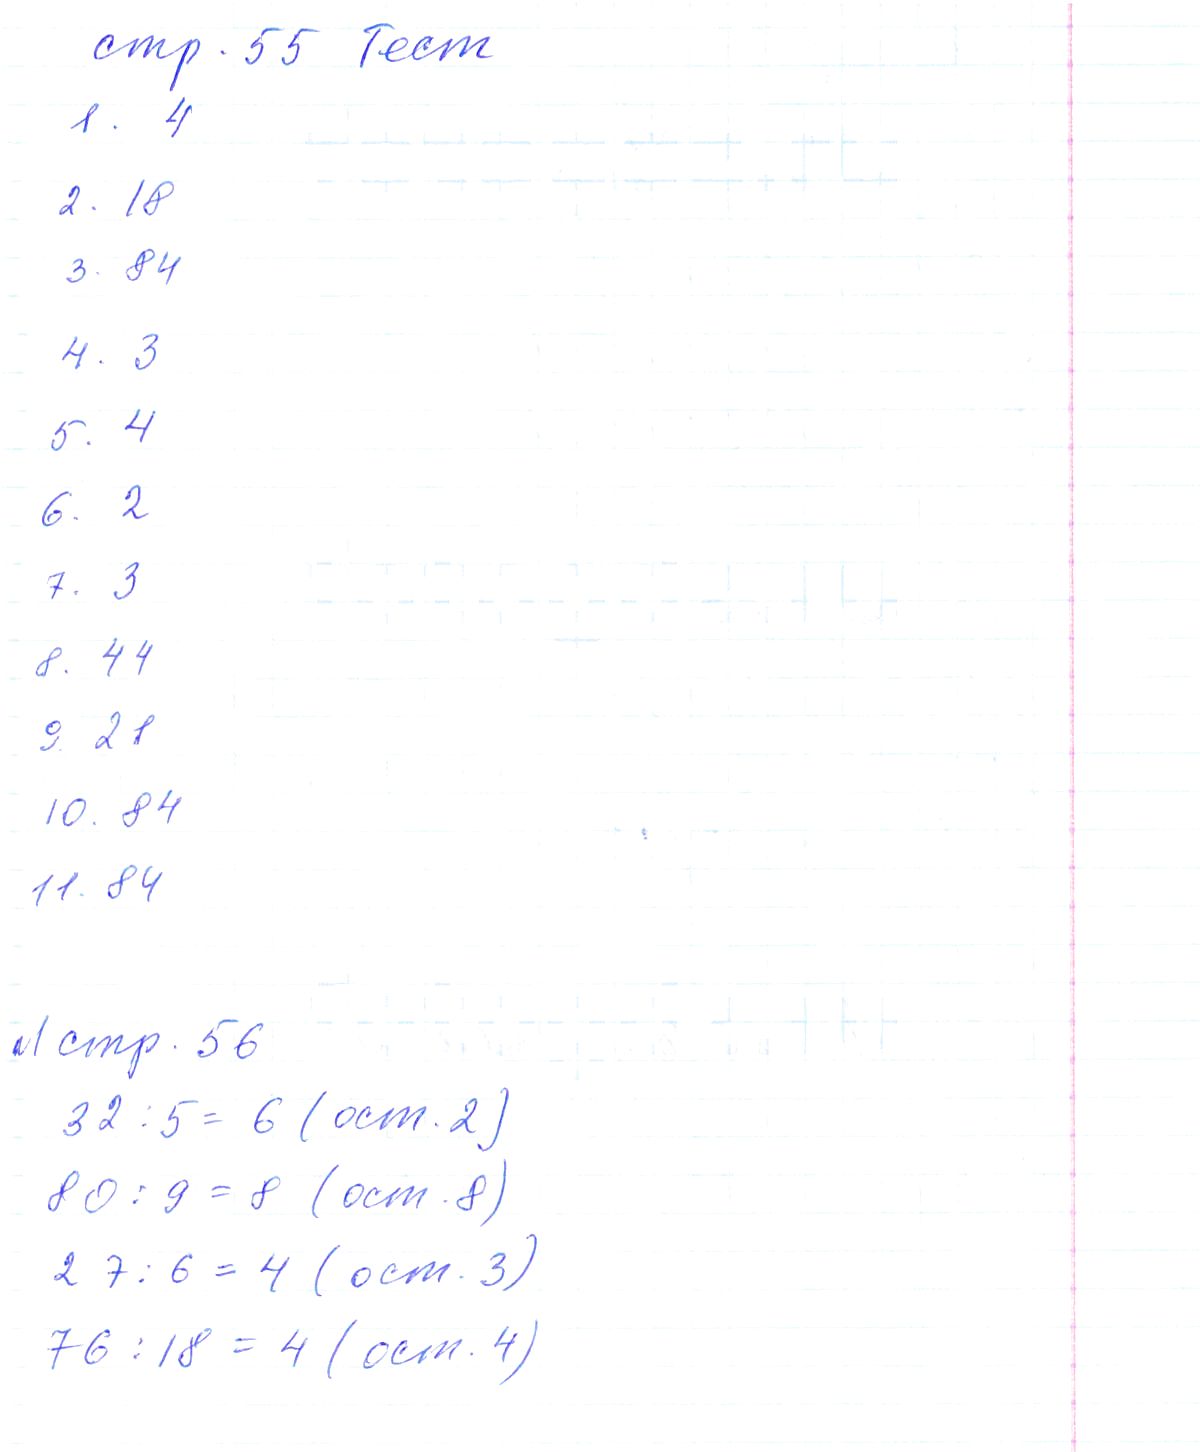 стр. 55 Тест
1. 4
2. 18
3. 84
4. 3
5. 4
6. 2
7. 3
8. 44
9. 21
10. 84
11. 84
№1 стр. 56
32 : 5 = 6 (ост. 2)
80 : 9 = 8 (ост. 8)
27 : 6 = 4 (ост. 3)
76 : 18 = 4 (ост. 4)